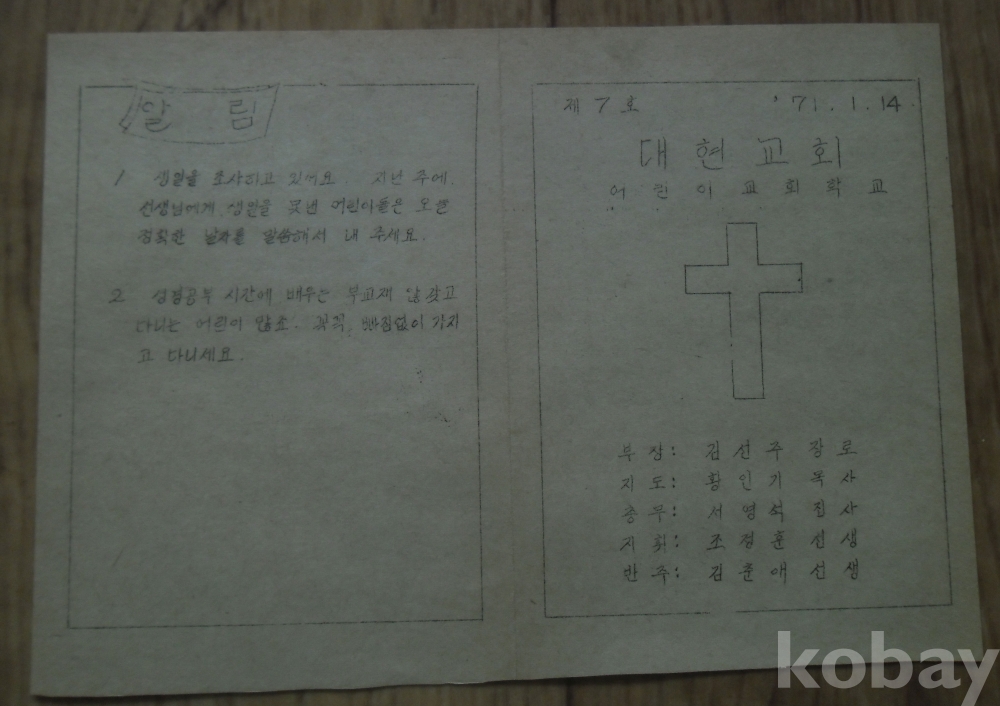 알 림
1 생일을 조사하고 있어요. 지난 주에
선생님에게 생일을 못낸 어린이들은 오늘
정확한 날짜를 말씀해서 내 주세요.
2 성경공부 시간에 배우는 부교재 않 갖고
다니는 어린이 많죠. 꼭꼭, 빠짐없이 가지
고 다니세요.
제 7 호 '71. 1. 14
대 현 교 회
어 린 이 교 회 학 교
부 장: 김 선 주 장 로
지 도: 황 인 기 목 사
총 무: 서 영 석 집 사
지 휘: 조 정 훈 선 생
반 주: 김 춘 애 선 생
kobay